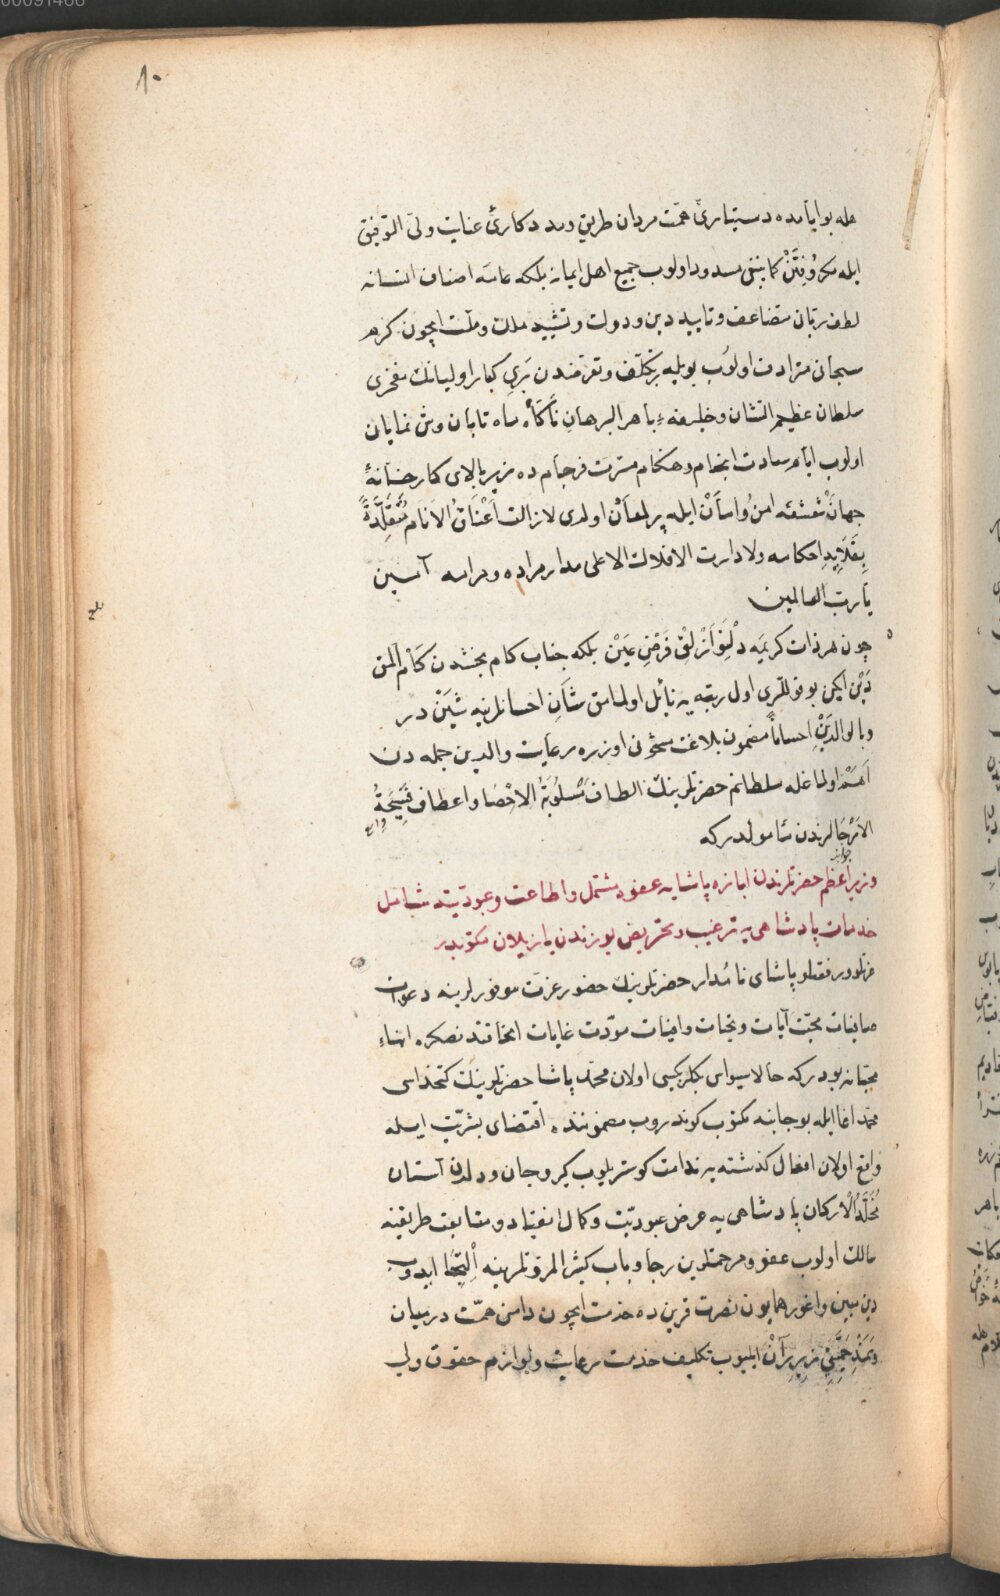 00091466
١٠
هله بو ایامده دستیاری همت مردان طریق ومددکارئ عنایت ولی التوفیق
ایله کما ینبغی مسدود اولوب جمیع اهل ایمانه بلکه عامه اصناف انسانه
لطف ربانی متضاعف وتایید دین ودولت وتشیید ملک وملت ایچون کرم
سبحانی مترادف اولوب بویله تکلف وتعرفندن بری کبار اولیانك مفخری
سلطان عظیم الشان وخلیفهٔ باهر البرهان کأنه ماه تابان وش نمایان
اولوب ایام سعادت انجام وهنکام مسرت فرجام ده زیر بالای کارخانهٔ
جهان شعشعه امن وامان ایله پر لمعان اولدی لازالت اعناق الانام متقلدة
بقلاید احکامه ولا دارت الافلاك الاعلی مدار مراده ومرامه آمین
یا رب العالمین
چون هر ذات کریمه دلنوازلق فرض عین بلکه جناب کام بخشدن کام آلمق
دین ایکن بو قوللری اول رتبه یه نائل اولمامق شان احسانلرینه شین در
وبالوالدین احساناً مضمون بلاغت مشحونی اوزره رعایت والدین جمله دن
اهم اولماغله سلطانم حضرتلرینك الطاف مسلوبة الاحصا واعطاف فسیحة
الارجالرندن مأمولدرکه
وزیر اعظم حضرتلرندن ابازه پاشایه عفوه مشتمل واطاعت وعبودیته شامل
خدمات پادشاهی یه ترغیب وتحریض یوزندن یازیلان مکتوبدر
عزتلو ورفعتلو پاشای نامدار حضرتلرینك حضور عزت موفورلرینه دعوات
صافیات محبت آیات وتحیات وافیات مودت غایات اتحافندنصکره انهاء
محبانه بودرکه حالا سیواس بکلربکیسی اولان محمد پاشا حضرتلرینك کتخداسی
محمد اغا ایله بو جانبه مکتوب کوندروب مضموننده اقتضای بشریت ایله
واقع اولان افعال کذشته یه ندامت کوستریلوب کیرو جان ودلدن آستان
مخلد الارکان پادشاهی یه عرض عبودیت وکمال انقیاد ومتابعت طریقینه
سالك اولوب عفو ومرحمتلرین رجا وباب کثیر المروتلرینه التجا ایدوب
دین مبین واغور همایون نصرت قرین ده خدمت ایچون دامن همت درمیان
ایلیوب تکلیف خدمت رعایت ولوازم حقوق ولی